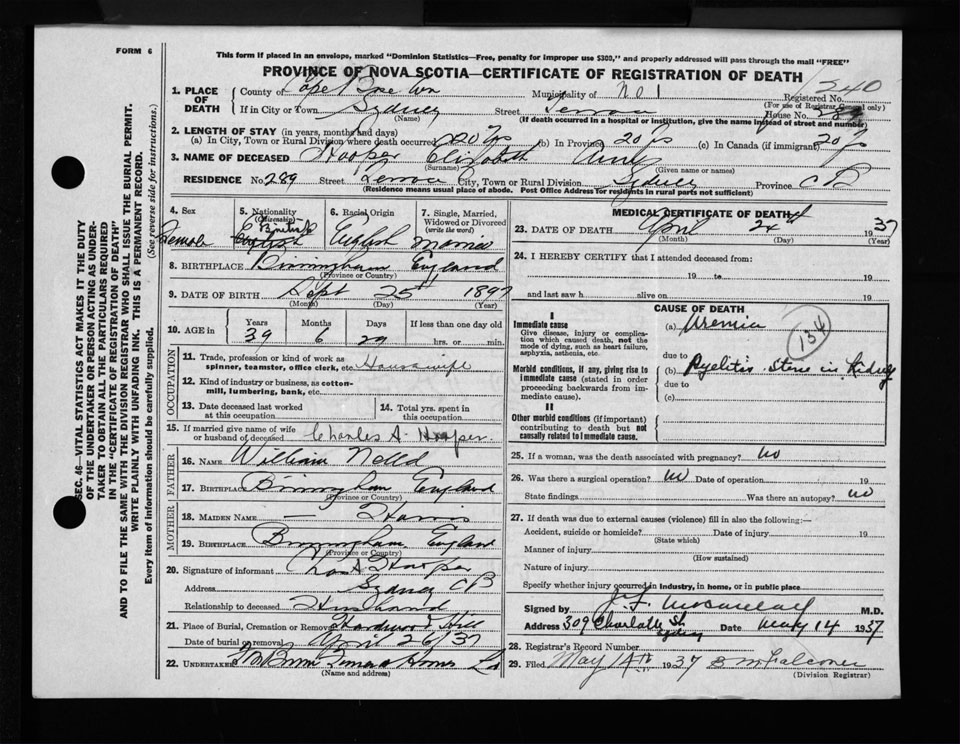 FORM 6
This form if placed in an envelope, marked "Dominion Statistics—Free, penalty for improper use $300," and properly addressed will pass through the mail "FREE"
PROVINCE OF NOVA SCOTIA—CERTIFICATE OF REGISTRATION OF DEATH
1. PLACE OF DEATH
County of Cape Breton Municipality of No 1 Registered No. 240
(For use of Registrar General only)
If in City or Town Sydney Street Terrace House No. 289
(Name) (If death occurred in a hospital or institution, give the name instead of street and number)
2. LENGTH OF STAY (in years, months and days)
(a) In City, Town or Rural Division where death occurred 20 yrs (b) In Province 20 yrs (c) In Canada (if immigrant) 20 yrs
3. NAME OF DECEASED Hooper Elizabeth Ann
(Surname) (Given name or names)
RESIDENCE No. 289 Street Terrace City, Town or Rural Division Sydney Province C B
(Residence means usual place of abode. Post Office Address for residents in rural parts not sufficient)
SEC. 46—VITAL STATISTICS ACT MAKES IT THE DUTY
OF THE UNDERTAKER OR PERSON ACTING AS UNDER-
TAKER TO OBTAIN ALL THE PARTICULARS REQUIRED
IN THE "CERTIFICATE OF REGISTRATION OF DEATH"
AND TO FILE THE SAME WITH THE DIVISION REGISTRAR WHO SHALL ISSUE THE BURIAL PERMIT.
WRITE PLAINLY WITH UNFADING INK. THIS IS A PERMANENT RECORD.
Every item of information should be carefully supplied. (See reverse side for instructions.)
4. Sex Female
5. Nationality (Citizenship) British English
6. Racial Origin English
7. Single, Married, Widowed or Divorced (write the word) Married
8. BIRTHPLACE Birmingham England
(Province or Country)
9. DATE OF BIRTH Sept 25 1897
(Month) (Day) (Year)
10. AGE in Years Months Days If less than one day old
39 6 29 hrs. or min.
OCCUPATION
11. Trade, profession or kind of work as spinner, teamster, office clerk, etc. Housewife
12. Kind of industry or business, as cotton-mill, lumbering, bank, etc.
13. Date deceased last worked at this occupation
14. Total yrs. spent in this occupation
15. If married give name of wife or husband of deceased Charles A. Hooper.
FATHER
16. NAME William
17. BIRTHPLACE Birmingham England
(Province or Country)
MOTHER
18. MAIDEN NAME Harris
19. BIRTHPLACE Birmingham England
(Province or Country)
20. Signature of informant Chas A Hooper
Address Sydney C B
Relationship to deceased Husband
21. Place of Burial, Cremation or Removal Hardwood Hill
Date of burial or removal April 26/37
22. Undertaker Funeral Home Ld
(Name and address)
MEDICAL CERTIFICATE OF DEATH
23. DATE OF DEATH April 24 1937
(Month) (Day) (Year)
24. I HEREBY CERTIFY that I attended deceased from:
19 to 19
and last saw h alive on 19
CAUSE OF DEATH
I
Immediate cause
Give disease, injury or complication which caused death, not the mode of dying, such as heart failure, asphyxia, asthenia, etc.
(a) Uremia
134
due to
Morbid conditions, if any, giving rise to immediate cause (stated in order proceeding backwards from immediate cause).
(b) Pyelitis Stone in Kidney
due to
(c)
II
Other morbid conditions (if important) contributing to death but not causally related to immediate cause.
25. If a woman, was the death associated with pregnancy? no
26. Was there a surgical operation? no Date of operation 19
State findings Was there an autopsy? no
27. If death was due to external causes (violence) fill in also the following:—
Accident, suicide or homicide? Date of injury 19
(State which)
Manner of injury
(How sustained)
Nature of injury
Specify whether injury occurred in industry, in home, or in public place
Signed by M.D.
Address 309 Charlotte St. Sydney Date May 14 1937
28. Registrar's Record Number
29. Filed May 14th 1937 B M Falconer
(Division Registrar)